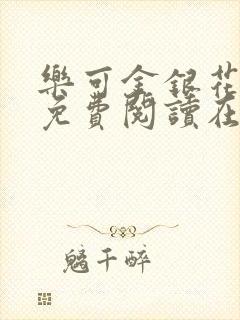 樂可金銀花
免費閱讀在
鴰千醉